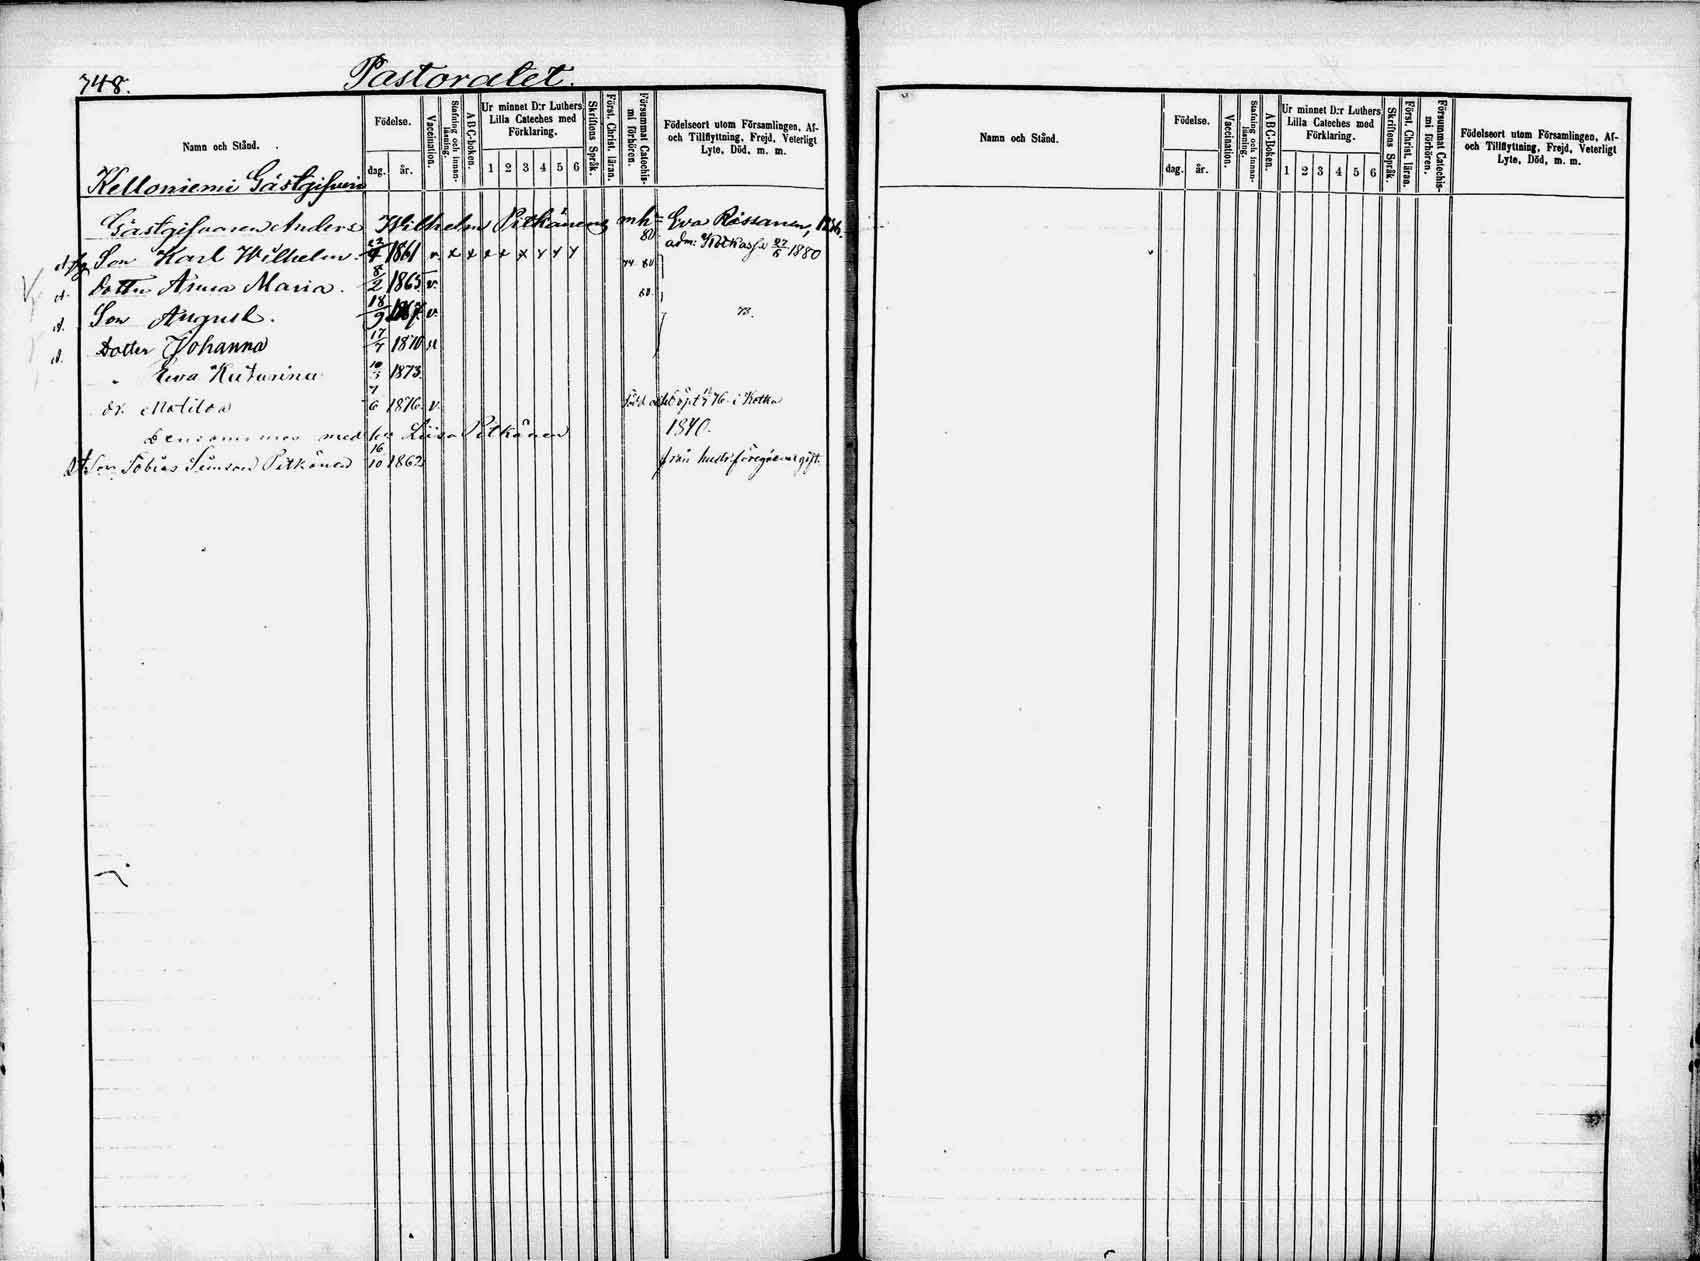 748.
Pastoratet.
Namn och Stånd.
Födelse.
dag.
år.
Vaccination.
Stafning och innan-läsning.
ABC-boken.
Ur minnet D:r Luthers Lilla Cateches med Förklaring.
1 2 3 4 5 6
Skriftens Språk.
Först. Christ. läran.
Försummat Catechis-mi förhören.
Födelseort utom Församlingen, Af-
och Tillflyttning, Frejd, Veterligt
Lyte, Död, m. m.
Kelloniemi Gästgifveri
Gästgifvaren Anders Wilhelm Pitkänens m h Eva Rissanen,
80
Son Karl Wilhelm 4 1861 v x x x x x x x x adm: 1880
74 80
Dotter Anna Maria. 8/2 1865 v.
80
Son August. 18/9 1867 v. 73.
Dotter Johanna 17/7 1870 v
" Eva Katarina 10/3 1873
dr. Matilda 7/6 1876 v. född och döpt 76 i Kotka
med Liisa Pitkänen 1840.
Son Tobias Simson Pitkänen 16/10 1862 från gift.
Namn och Stånd.
Födelse.
dag.
år.
Vaccination.
Stafning och innan-läsning.
ABC-Boken.
Ur minnet D:r Luthers Lilla Cateches med Förklaring.
1 2 3 4 5 6
Skriftens Språk.
Först. Christ. läran.
Försummat Catechis-mi förhören.
Födelseort utom Församlingen, Af-
och Tillflyttning, Frejd, Veterligt
Lyte, Död, m. m.